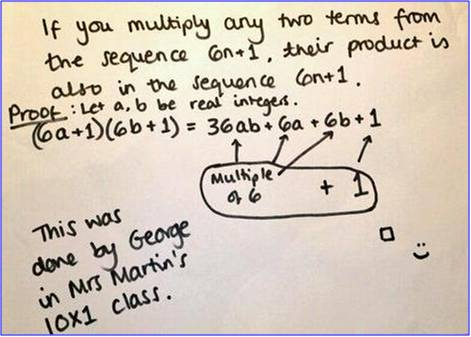 If you multiply any two terms from
the sequence 6n+1, their product is
also in the sequence 6n+1.
Proof: Let a, b be real integers.
(6a+1)(6b+1) = 36ab + 6a + 6b + 1
Multiple
of 6 + 1
This was
done by George
in Mrs Martin's
10X1 class.